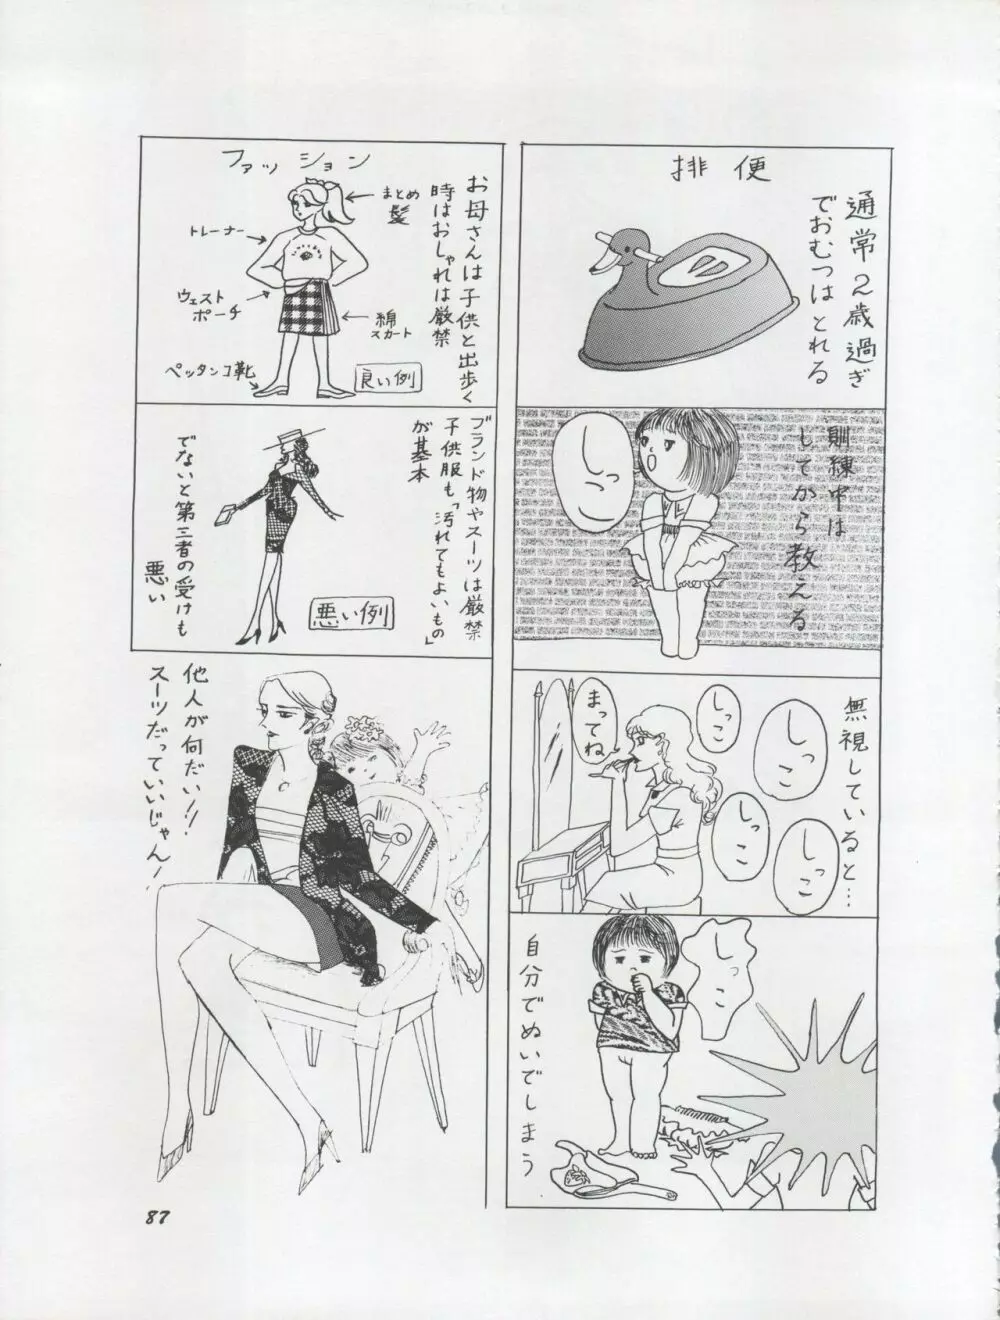 排便
通常2歳過ぎ
でおむつはとれる
訓練中は
してから教える
しっこ
無視していると…
しっこ
しっこ
しっこ
しっこ
まっててね
しっこ
自分でぬいでしまう
ファッション
お母さんは子供と出歩く
時はおしゃれは厳禁
まとめ
髪
トレーナー
ウェスト
ポーチ
綿
スカート
ペッタンコ靴
良い例
ブランド物やスーツは厳禁
子供服も「汚れてもよいもの」
が基本
でないと第三者の受けも
悪い
悪い例
他人が何だい!!
スーツだっていいじゃん!
87